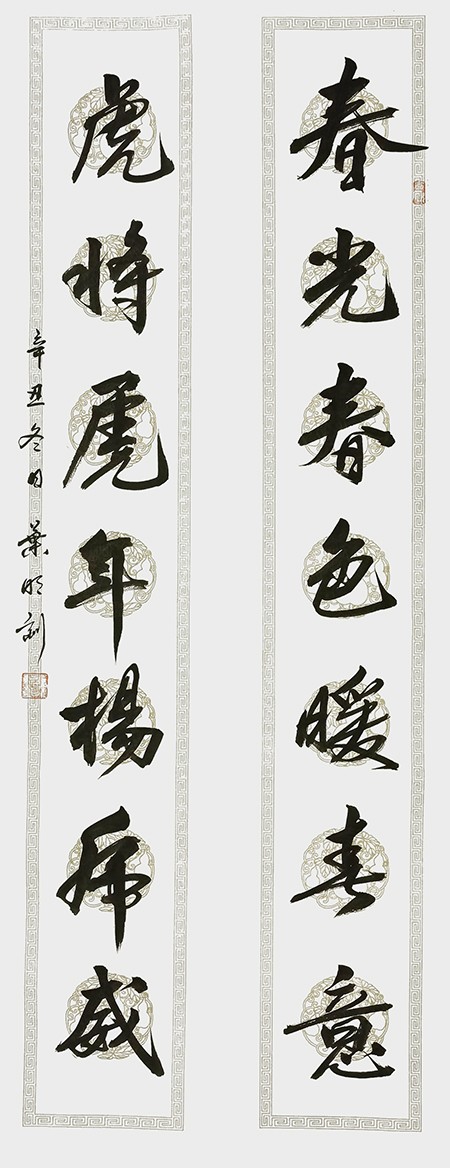 春光春色暖春意
虎将虎年楊虎威
辛丑冬日 葉明